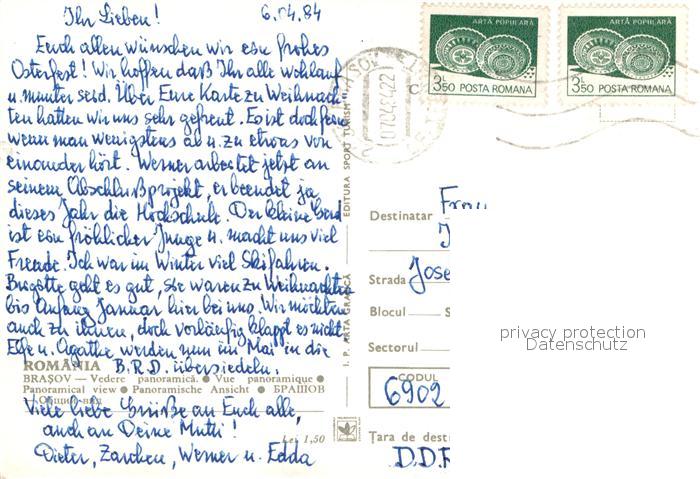 Ihr Lieben! 6.04.84
Euch allen wünschen wir ein frohes
Osterfest! Wir hoffen daß Ihr alle wohlauf
u. munter seid. Über Eure Karte zu Weihnach-
ten hatten wir uns sehr gefreut. Es ist doch fein
wenn man wenigstens ab u. zu etwas von
einander hört. Werner arbeitet jetzt an
seinem Abschlußprojekt, er beendet ja
dieses Jahr die Hochschule. Der kleine Gerd
ist ein fröhlicher Junge u. macht uns viel
Freude. Ich war im Winter viel Skifahren.
Brigitte geht es gut, sie waren zu Weihnachten
bis Anfang Januar hier bei uns. Wir möchten
auch zu ihnen, doch vorläufig klappt es nicht
Effe u. Agathe werden nun im Mai in die
B.R.D. übersiedeln.
ROMÂNIA
BRAȘOV — Vedere panoramică. ● Vue panoramique ●
Panoramical view ● Panoramische Ansicht ● БРАШОВ
Общий вид
Viele liebe Grüße an Euch alle,
auch an Deine Mutti!
Lei 1,50
Dieter, Werner u. Edda
EDITURA SPORT TURISM
I. P. ARTA GRAFICĂ
ARTĂ POPULARĂ
3L50 POSTA ROMANA
ARTĂ POPULARĂ
3L50 POSTA ROMANA
Destinatar
Strada Jose
Blocul S
Sectorul
CODUL
6902
Țara de dest
D.D.R
privacy protection
Datenschutz